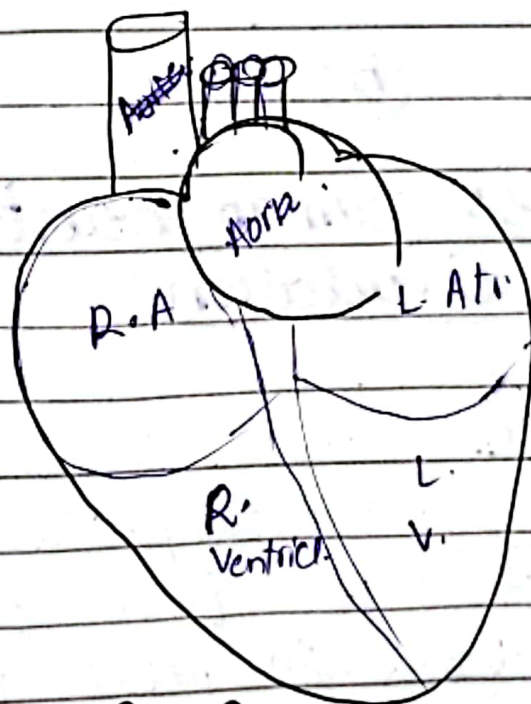 Aorta
R. A
L. Atr.
R.
Ventricl.
L.
V.